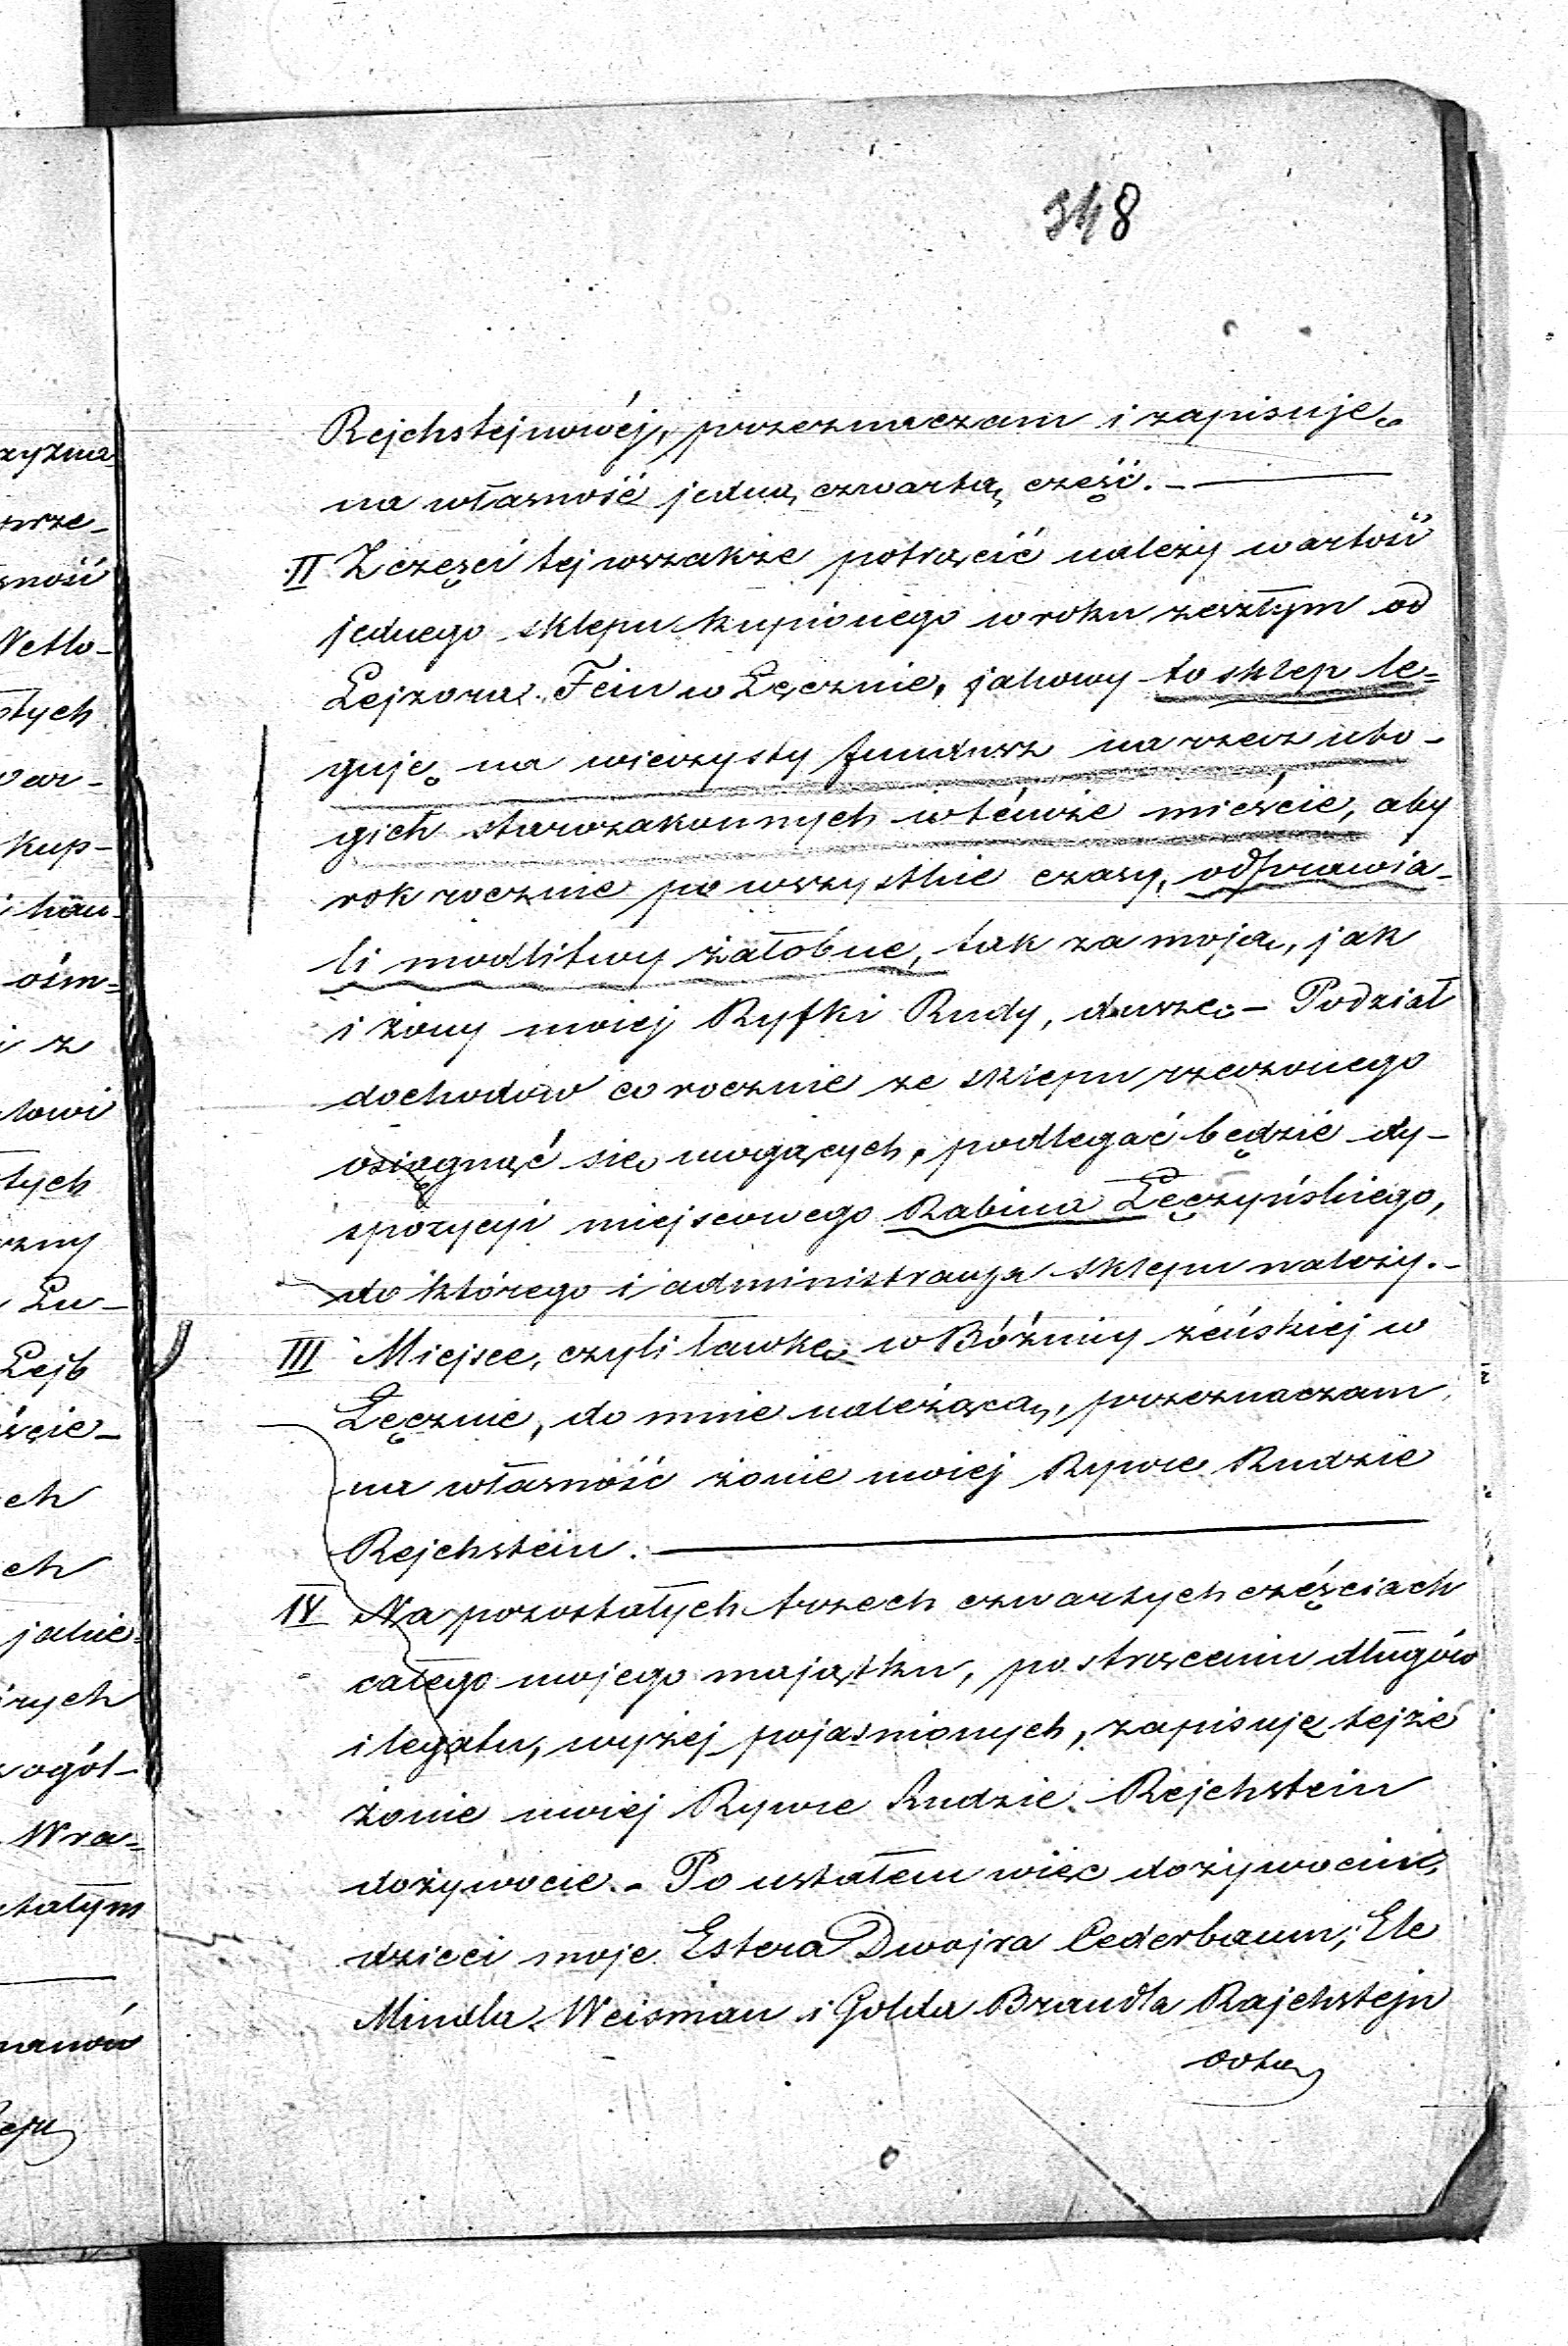 348
Rejchstejnowéj, przeznaczam i zapisuję
na własność jedną czwartą część. —
II Z części tej wszakże potrącić należy wartość
jednego sklepu kupionego w roku zeszłym od
Lejzora Fein w Łęcznie, jakowy to sklep le-
guję na wieczysty fundusz na rzecz ubo-
gich starozakonnych w témże mieście, aby
rok rocznie po wszystkie czasy, odprawia-
li modlitwy żałobne, tak za moją, jak
i żony mojej Ryfki Rudy, duszę. — Podział
dochodów corocznie ze sklepu rzeczonego
osiągnąć się mogących, podlegać będzie dy-
spozycyi miejscowego Rabina Łęczyńskiego,
do którego i administracya sklepu należy. —
III Miejsce, czyli ławkę w Bóżnicy żeńskiej w
Łęcznie, do mnie należącą, przeznaczam
na własność żonie mojej Rywce Rudzie
Rejchstein. —
IV Na pozostałych trzech czwartych częściach
całego mojego majątku, po strąceniu długów
i legatu, wyżej pojasnionych, zapisuję tejże
żonie mojej Rywce Rudzie Rejchstein
dożywocie. — Po ustałem więc dożywociu,
dzieci moje Estera Dwojra Cederbaum, Ele
Mindla Weisman i Golda Brandla Rajchstejn
zyzna-
wrze-
sność
Netlo-
łtych
war-
kup-
i han-
ośm-
i z
łowi
łtych
czny
Lu-
Lejb
ście-
ch
ch
jakie-
rych
wogół-
Wra-
stałym
manów